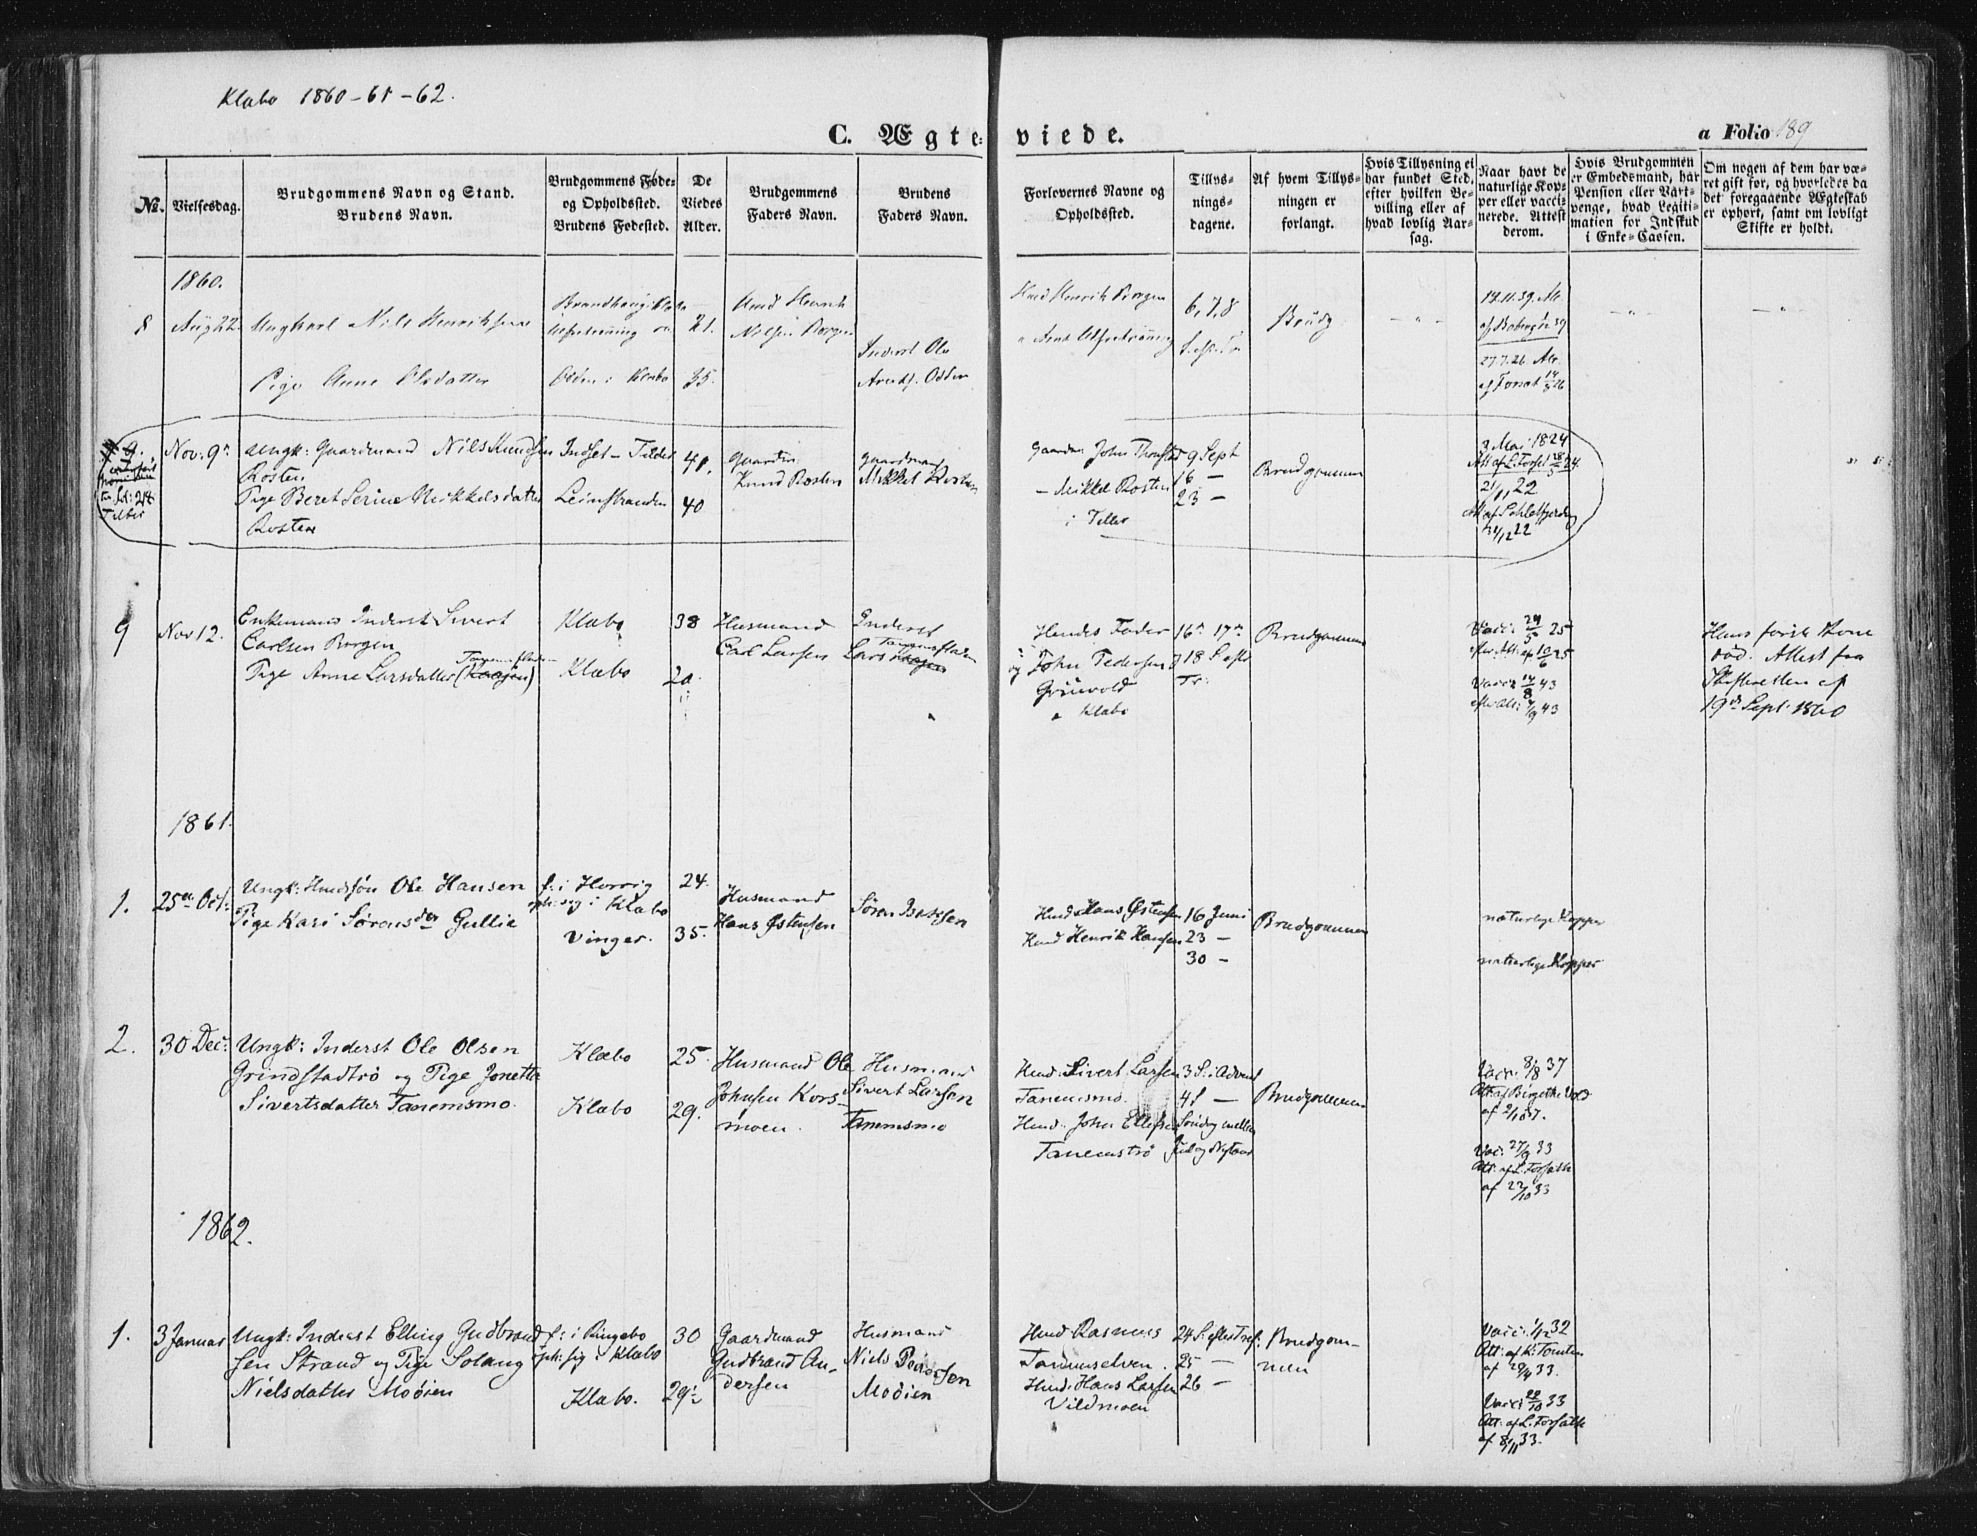 Klæbo 1860-61-62.
C. Ægteviede.
a Folio 189
No.
Vielsesdag.
Brudgommens Navn og Stand.
Brudens Navn.
Brudgommens Føde-
og Opholdssted.
Brudens Fødested.
De
Viedes
Alder.
Brudgommens
Faders Navn.
Brudens
Faders Navn.
Forlovernes Navne og
Opholdssted.
Tillys-
nings-
dagene.
Af hvem Tillys-
ningen er
forlangt.
Hvis Tillysning ei
har fundet Sted,
efter hvilken Be-
villing eller af
hvad lovlig Aar-
sag.
Naar havt de
naturlige Kop-
per eller vacci-
nerede. Attest
derom.
Hvis Brudgommen
er Embedsmand, har
Pension eller Vart-
penge, hvad Legiti-
mation for Indskud
i Enke-Cassen.
Om nogen af dem har væ-
ret gift før, og hvorledes da
det foregaaende Ægteskab
er ophørt, samt om lovligt
Skifte er holdt.
1860.
8
Aug 22.
Ungkarl Nils Henriksen
21.
Nilsen Borgen
Hmd Henrik Borgen
6, 7, 8
Brudg
Pige Anne Olsdatter
Odden i Klæbo
35.
Inderst Ole
Odden
9.
Nov: 9n
Ungk: Gaardmand Nils Knudsen
Rosten
Pige Beret Serine Mikkelsdatter
Rosten
Indset - Tiller
Leinstranden
41.
40
Gaardm
Knud Rosten
gaardmand
Mikkel Rosten
Gaardm John
- Mikkel Rosten
i Tiller
9 Sept
16 -
23 -
Brudgommen
3 Mai 1824
21/11 22
31/12 22
9
Nov 12.
Enkemand Inderst Sivert
Carlsen Borgen
Pige Anne Larsdatter
Klæbo
Klæbo
38
20.
Husmand
Carl Larsen
Inderst
Lars
Hendes Fader
og John Pedersen
Grønvold
Klæbo
16n 17n
g 18 S eft
Tr:
Brudgommen
Vacc: 24/5 25
efter Att: af 10/6 25
Vacc: 14/8 43
efter Att: 7/9 43
Hans forrige Kone
død. Attest fra
Skifteretten af
19de Sept: 1860
1861.
1.
25de Oct:
Ungk: Hmdssøn Ole Hansen
Pige Kari Sørensdr Gullie
f: i Horrig
oph: sig i Klæbo
Vinger.
24.
35.
Husmand
Hans Østensen
Søren Isaksen
Hmd Hans Østensen
Hmd Henrik Hansen
16 Juni
23 -
30 -
Brudgommen
naturlige Kopper
naturlige Kopper
2.
30 Dec:
Ungk: Inderst Ole Olsen
Grindstadtrø og Pige Jonette
Sivertsdatter Tanemsmo.
Klæbo
Klæbo
25.
29.
Husmand Ole
Johnsen Kors-
moen.
Husmand
Sivert Larsen
Tanemsmo
Hmd: Sivert Larsen
Tanemsmo.
Hmd: John Ellefsen
Tanemstrø
3 S: i Advent
4 S -
Søndag mellem
Jul og Nytaar
Brudgommen
Vacc: 8/8 37
Vac: 27/9 33
Att: af L: Forseth
af 23/10 33
1862.
1.
3 Januar
Ungk: Inderst Elling Gudbrand-
sen Strand og Pige Solaug
Nielsdatter Moøien
f: i Ringebo
oph: sig i Klæbo
Klæbo.
30
29½
Gaardmand
Gudbrand An-
dersen
Husmand
Niels Pedersen
Moøien
Hmd Rasmus
Tanemselven.
Hmd: Hans Larsen
Vildmoen
24 S: efter Tref:
25 -
26 -
Brudgom-
men
Vacc: 1/12 32
af 29/4 33.
Vacc: 22/10 33
Att: af L: Forsæth
af 8/11 33.